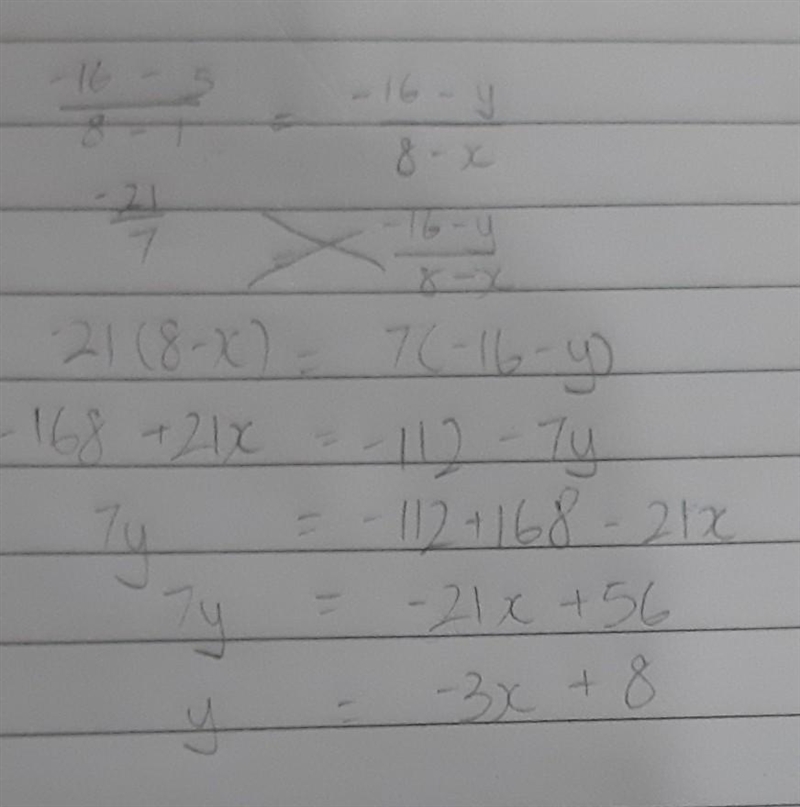 -16 - 5 / 8 - 1 = -16 - y / 8 - x
-21 / 7 = -16 - y / 8 - x
-21(8-x) = 7(-16-y)
-168 + 21x = -112 - 7y
7y = -112 + 168 - 21x
7y = -21x + 56
y = -3x + 8